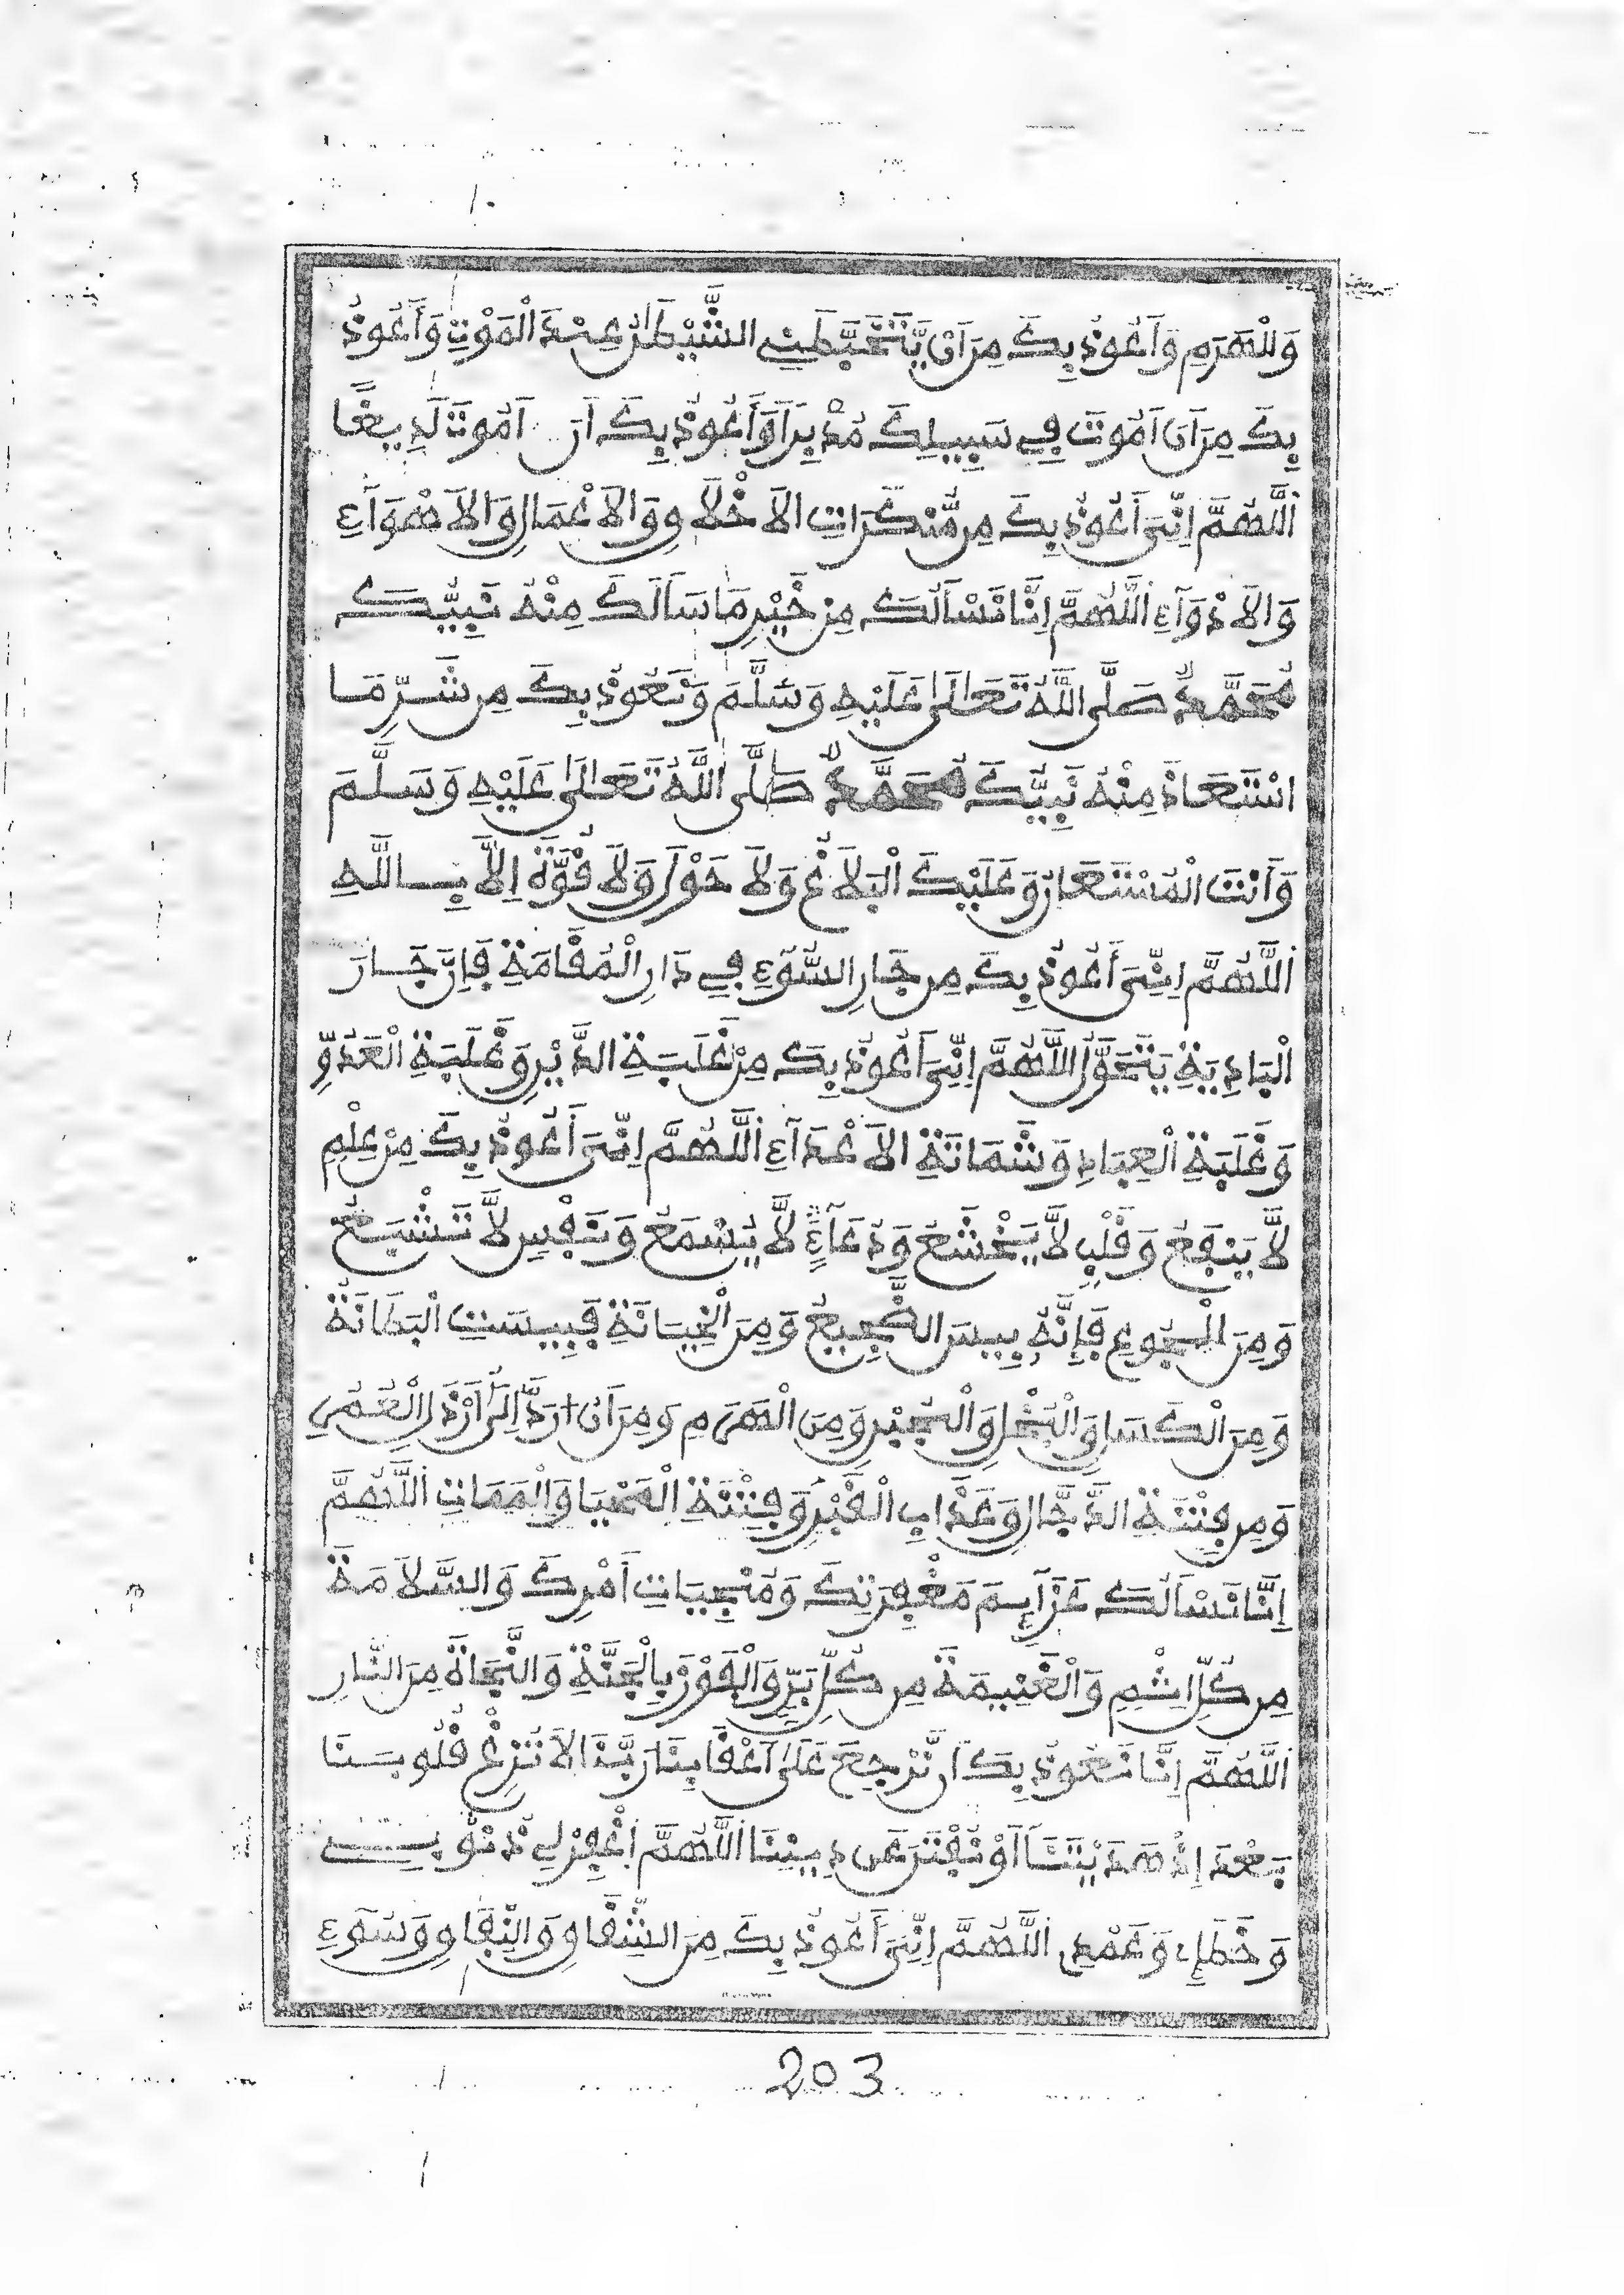 وَالْهَرَمِ وَأَعُوذُ بِكَ مِنَ اَنْ يَّتَخَبَّطَنِي الشَّيْطَٰنُ عِنْدَ الْمَوْتِ وَأَعُوذُ
بِكَ مِنَ اَنَ اَمُوتَ فِي سَبِيلِكَ مُدْبِرًا وَأَعُوذُ بِكَ اَنَ اَمُوتَ لَدِيغًا
اَللَّهُمَّ إِنِّىَ أَعُوذُ بِكَ مِن مُّنكَرَاتِ الَاخْلَاقِ وَالَاعْمَالِ وَالَاهْوَآءِ
وَالَادْوَآءِ اَللَّهُمَّ إِنَّا نَسْأَلُكَ مِنْ خَيْرِ مَا سَأَلَكَ مِنْهُ نَبِيُّكَ
مُحَمَّدٌ صَلَّى اللَّهُ تَعَالَىٰ عَلَيْهِ وَسَلَّمَ وَنَعُوذُ بِكَ مِن شَرِّ مَا
اسْتَعَاذَ مِنْهُ نَبِيُّكَ مُحَمَّدٌ صَلَّى اللَّهُ تَعَالَىٰ عَلَيْهِ وَسَلَّمَ
وَأَنتَ الْمُسْتَعَانُ وَعَلَيْكَ الْبَلَاغُ وَلَا حَوْلَ وَلَا قُوَّةَ إِلَّا بِاللَّهِ
اَللَّهُمَّ إِنِّىَ أَعُوذُ بِكَ مِن جَارِ السُّوءِ فِي دَارِ الْمُقَامَةِ فَإِنَّ جَارَ
الْبَادِيَةِ يَتَحَوَّلُ اللَّهُمَّ إِنِّىَ أَعُوذُ بِكَ مِنْ غَلَبَةِ الدَّيْنِ وَغَلَبَةِ الْعَدُوِّ
وَغَلَبَةِ الْعِبَادِ وَشَمَاتَةِ الَاعْدَآءِ اَللَّهُمَّ إِنِّىَ أَعُوذُ بِكَ مِنْ عِلْمٍ
لَّا يَنفَعُ وَقَلْبٍ لَّا يَخْشَعُ وَدُعَآءٍ لَّا يُسْمَعُ وَنَفْسٍ لَّا تَشْبَعُ
وَمِنَ الْجُوعِ فَإِنَّهُ بِيسَ الضَّجِيعُ وَمِنَ الْخِيَانَةِ فَبِيسَتِ الْبَطَانَةُ
وَمِنَ الْكَسَلِ وَالْبُخْلِ وَالْجُبْنِ وَمِنَ الْهَرَمِ وَمِنَ اَنُ ارَدَّ إِلَىٰ أَرْذَلِ الْعُمُرِ
وَمِن فِتْنَةِ الدَّجَّالِ وَعَذَابِ الْقَبْرِ وَفِتْنَةِ الْمَحْيَا وَالْمَمَاتِ اللَّهُمَّ
إِنَّا نَسْأَلُكَ عَزَآئِمَ مَغْفِرَتِكَ وَمُنْجِيَاتِ أَمْرِكَ وَالسَّلَامَةَ
مِن كُلِّ إِثْمٍ وَالْغَنِيمَةَ مِن كُلِّ بَرٍّ وَالْفَوْزَ بِالْجَنَّةِ وَالنَّجَاةَ مِنَ النَّارِ
اَللَّهُمَّ إِنَّا نَعُوذُ بِكَ أَن نَّرْجِعَ عَلَىٰ أَعْقَابِنَا رَبَّنَا لَا تُزِغْ قُلُوبَنَا
بَعْدَ إِذْ هَدَيْتَنَا أَوْ نُفْتَنَ عَن دِينِنَا اَللَّهُمَّ اغْفِرْ لِي ذُنُوبِي
وَخَطَئِي وَعَمْدِي اَللَّهُمَّ إِنِّىَ أَعُوذُ بِكَ مِنَ الشِّقَاقِ وَالنِّفَاقِ وَسُوءِ
203